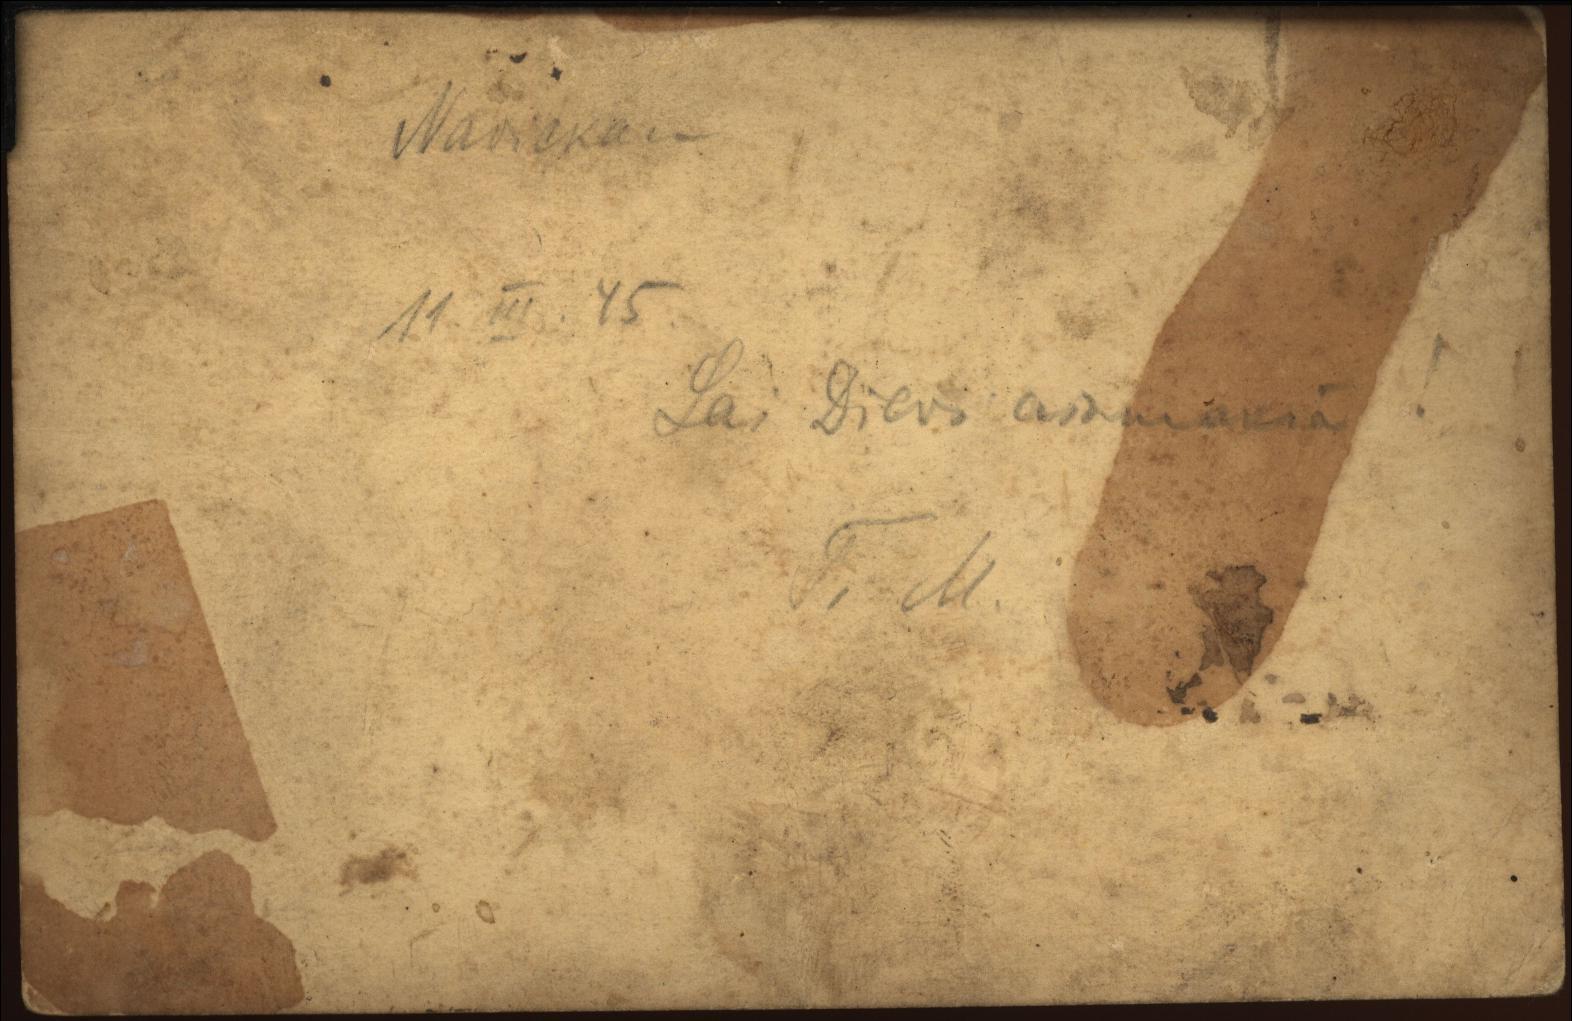 11. III. 45.
Lai Dievs atmaksā!
T. M.